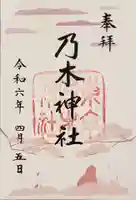 奉拝
乃木神社
令和六年 四月 五日